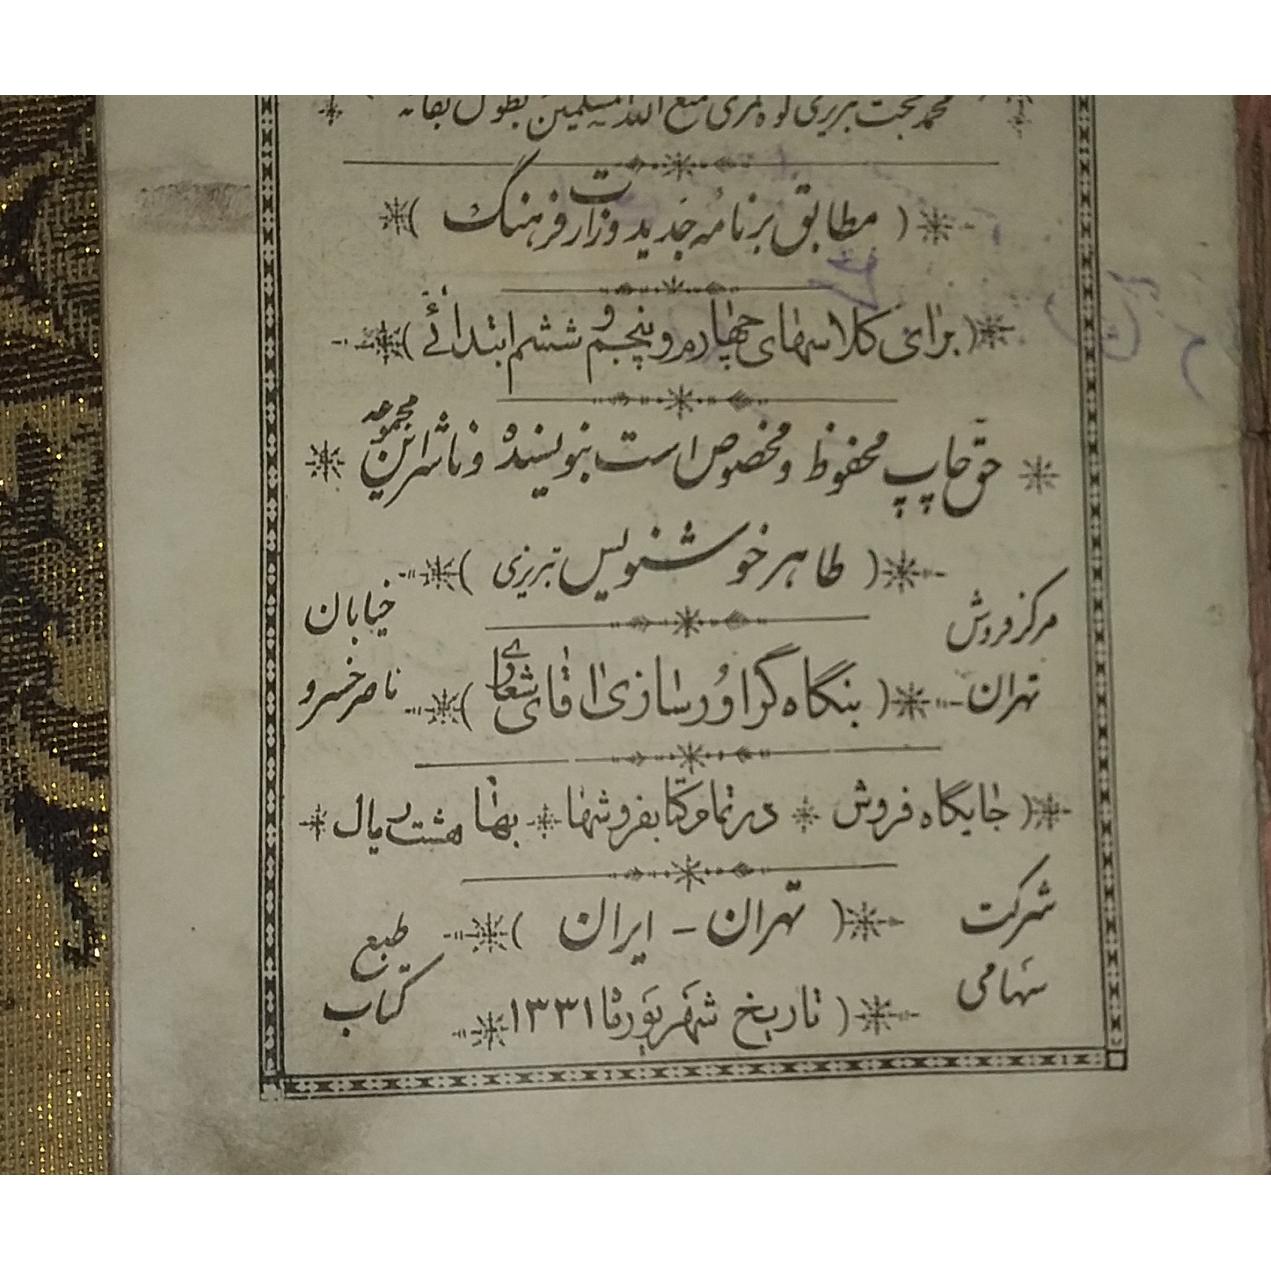 محمد حجت تبریزی کوه کمری متع الله المسلمین بطول بقائه
( مطابق برنامه جدید وزارت فرهنگ )
( برای کلاسهای چهارم و پنجم و ششم ابتدائی )
حق چاپ محفوظ و مخصوص است بنویسنده و ناشر این مجموعه
( طاهر خوشنویس تبریزی )
مرکز فروش
خیابان
تهران - ( بنگاه گراورسازی اقای شعاری )
ناصر خسرو
( جایگاه فروش * در تمام کتابفروشها * بها هشت ریال
شرکت
( تهران - ایران )
طبع
سهامی
( تاریخ شهریور ماه ۱۳۳۱
کتاب